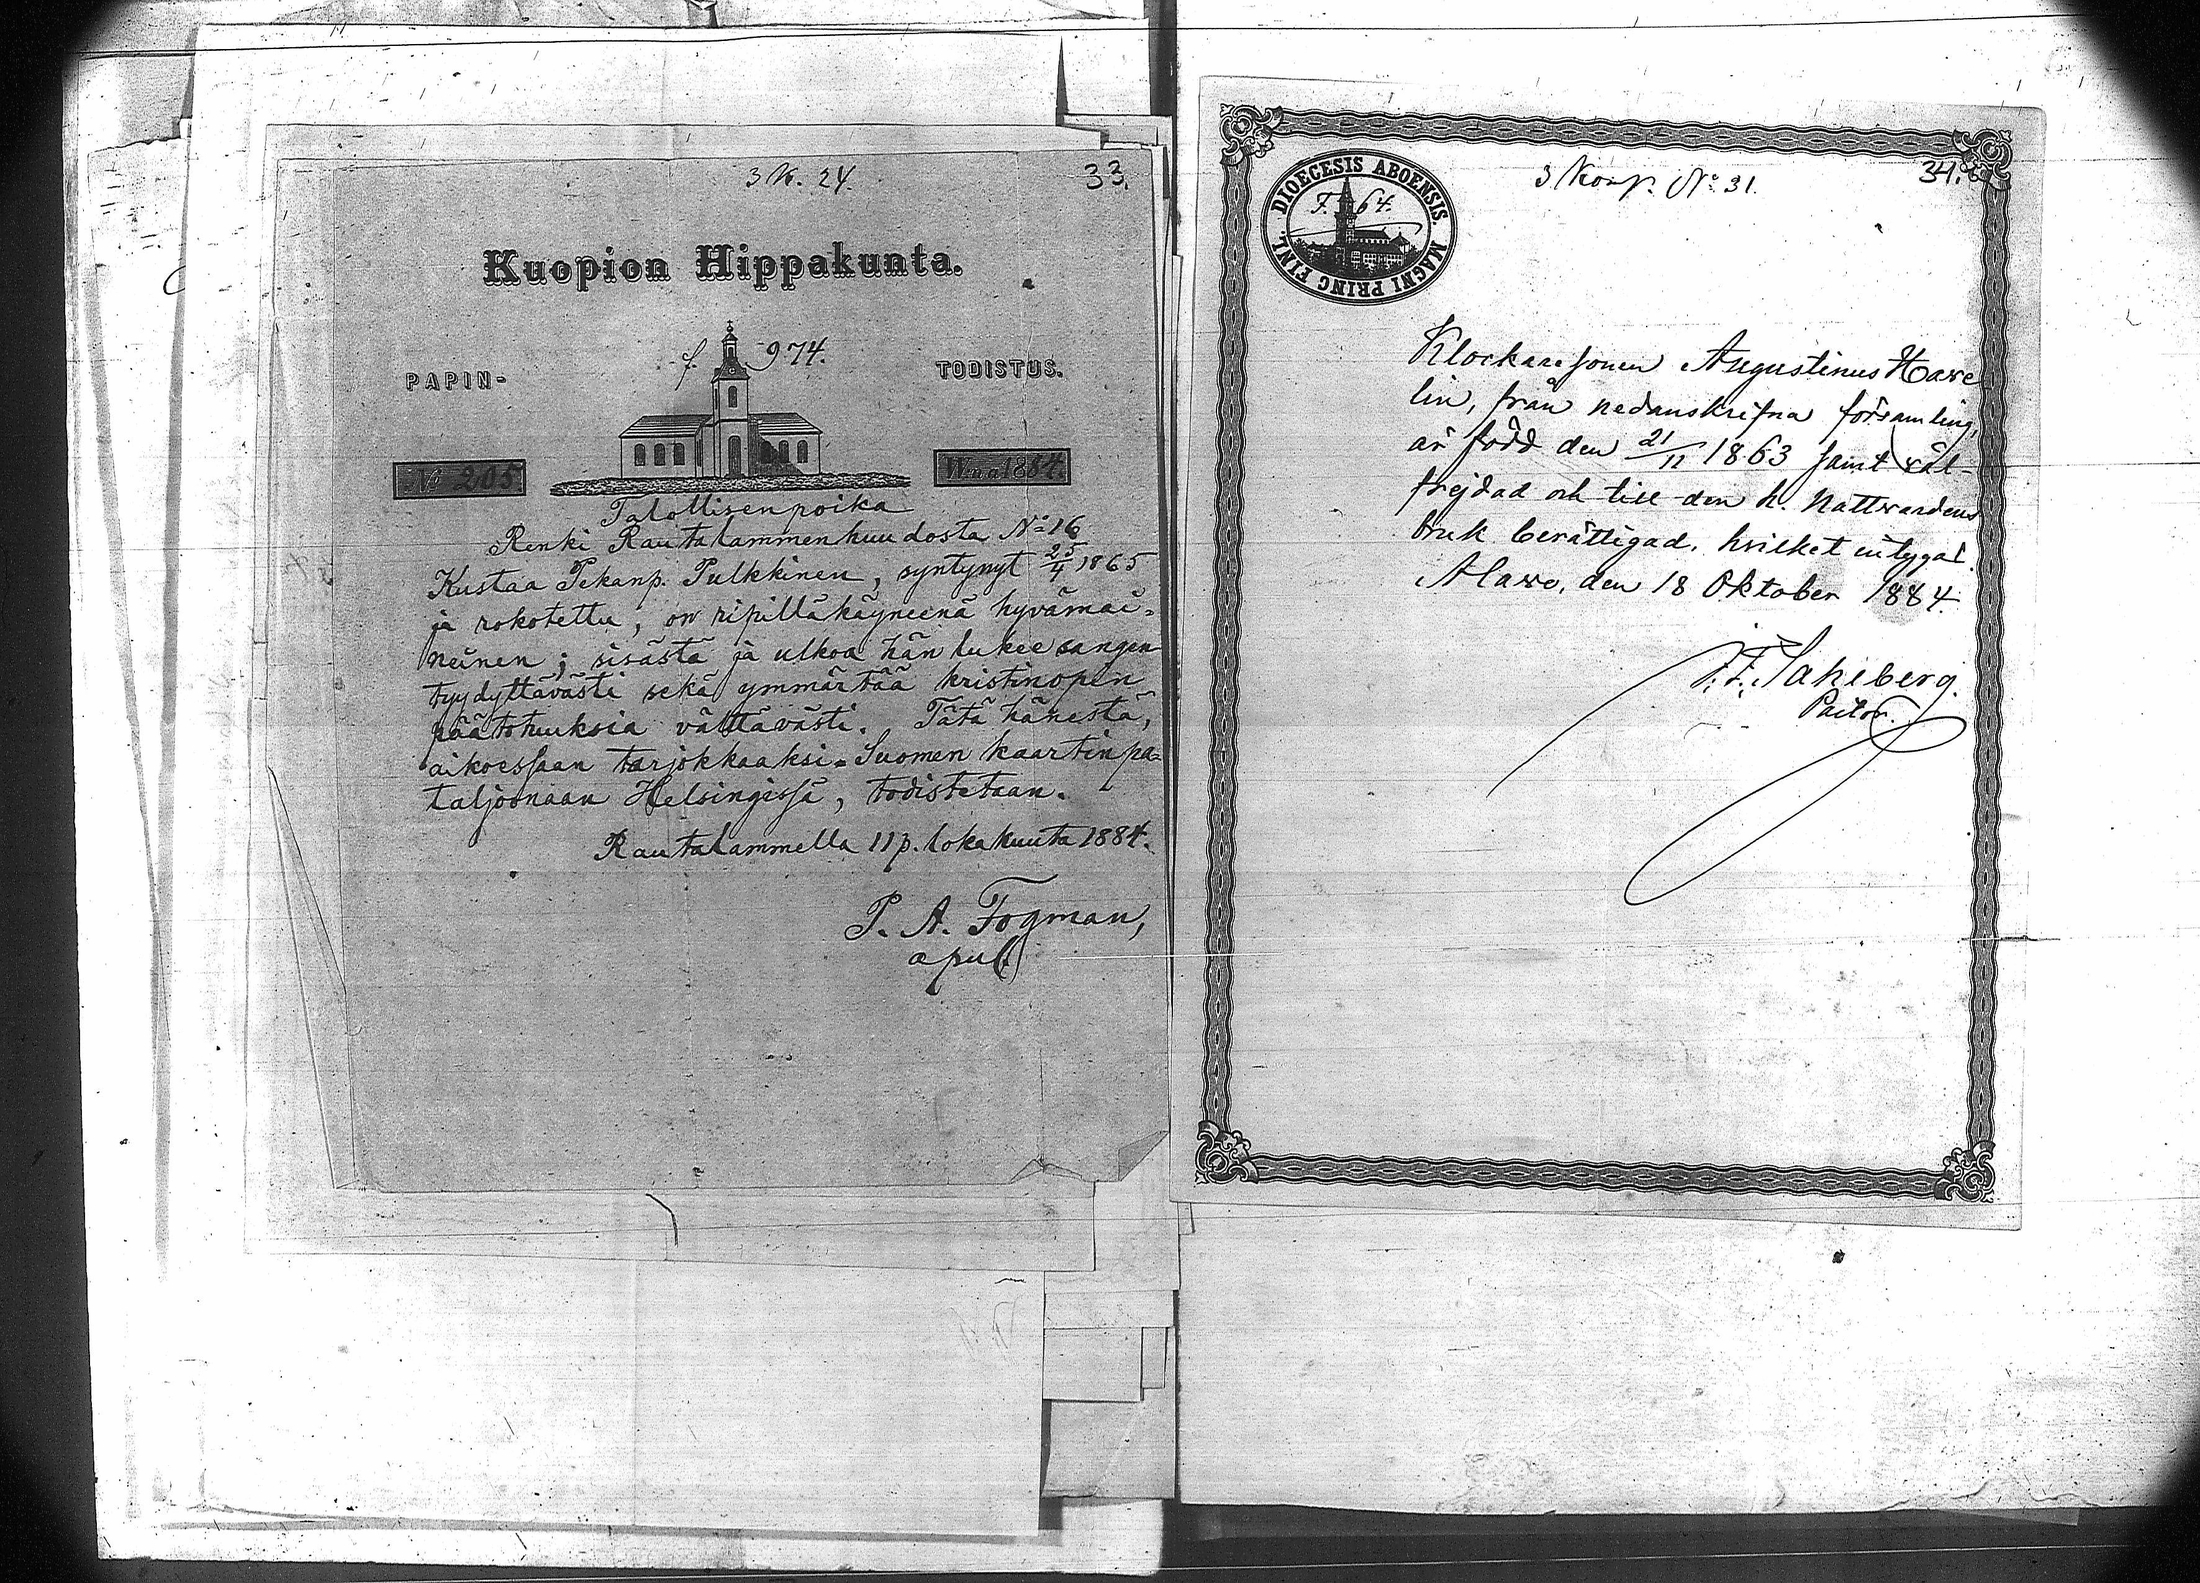 3 K. 24.
33.
Kuopion Hippakunta.
f. 974.
PAPIN-
TODISTUS.
No 205
Wnna 1884.
Talollisenpoika
Renki Rautalammen kuudosta No 16
Kustaa Pekanp. Pulkkinen, syntynyt 25/4 1865
ja rokotettu, on ripilläkäyneenä hyvämai-
neinen; sisästä ja ulkoa hän lukee sangen
tyydyttävästi sekä ymmärtää kristinopin
päätotuuksia välttävästi. Tätä hänestä,
aikoessaan tarjokkaaksi Suomen kaartin pa-
taljoonaan Helsingissä, todistetaan.
Rautalammella 11 p. lokakuuta 1884.
P. A. Fogman,
apul.
3 Komp. No 31.
34.
DIOECESIS ABOENSIS. MAGNI PRINC FINL.
F. 64.
Klockaresonen Augustinus Hawe
lin, från nedanskrifna församling,
är född den 21/11 1863 samt väl-
frejdad och till den h. Nattvardens
bruk berättigad, hvilket intygar.
Alavo, den 18 Oktober 1884
F. Sahlberg.
Pastor.